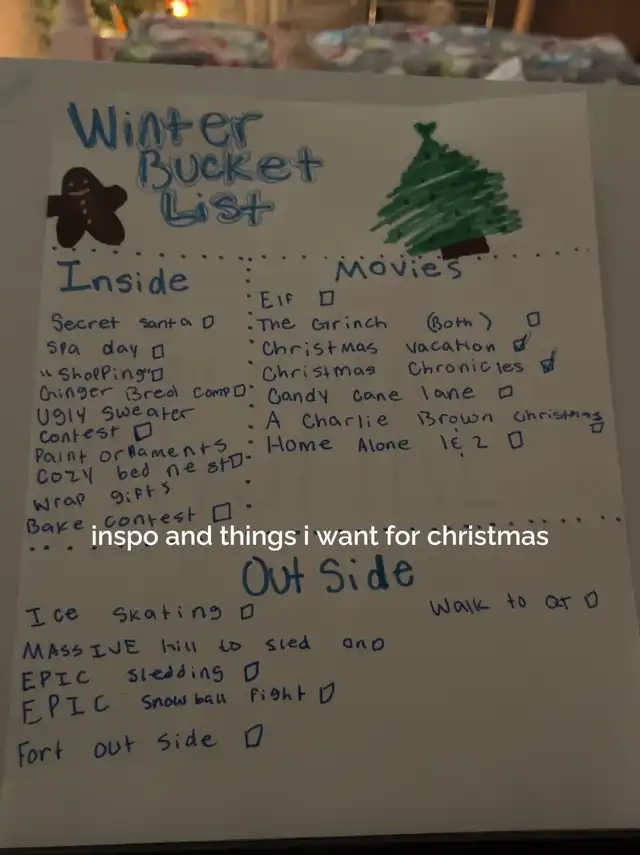 Winter
Bucket
List
Inside
Secret Santa
Spa day
"Shopping"
Ginger Bread Comp
Ugly Sweater
contest
Paint ornaments
Cozy bed nest
Wrap gifts
Bake contest
Movies
Elf
The Grinch (Both)
Christmas vacation
Christmas Chronicles
Candy cane lane
A Charlie Brown Christmas
Home Alone 1 & 2
inspo and things i want for christmas
Out Side
Ice Skating
MASSIVE hill to sled on
EPIC sledding
EPIC Snow ball Fight
Fort out side
Walk to QT